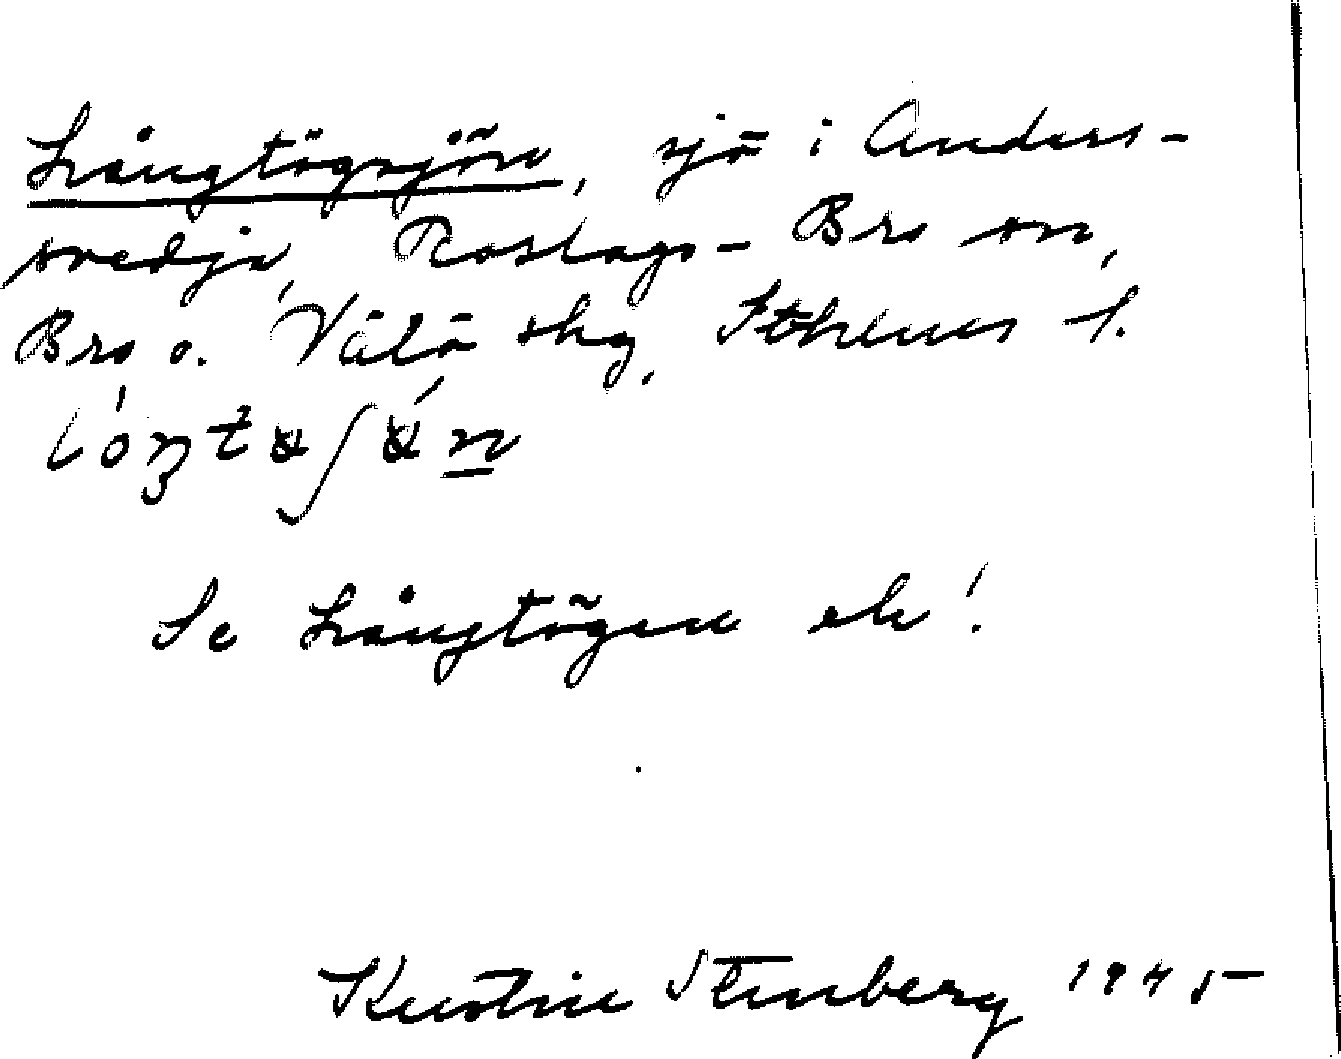 Långtögsjön, sjö i Anders-
svedja, Roslags-Bro sn,
Bro o. Vätö skg, Sthlms l.
Se Långtögen ek!
Kerstin Stenberg 1945